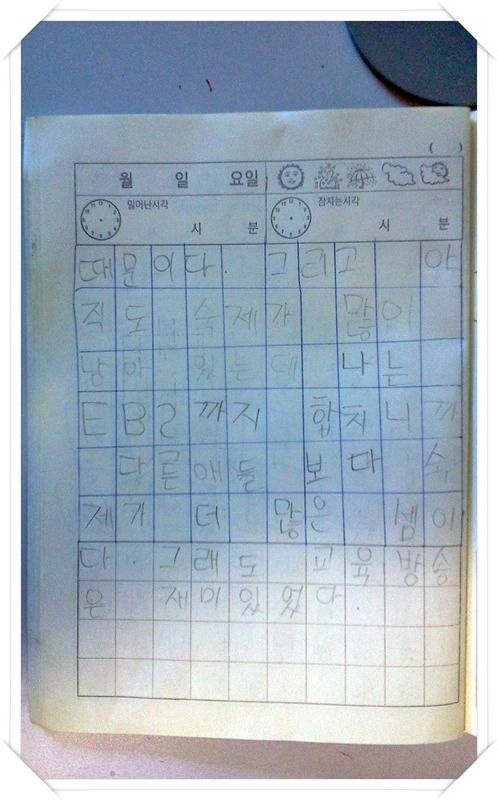 ( )
월 일 요일
일어난시각 시 분 잠자는시각 시 분
때문이다. 그리고 아
직도 숙제가 많이
남아 있는데 나는
EBS까지 합치니까
다른애들 보다 숙
제가 더 많은 셈이
다. 그래도 교육방송
은 재미있었다.